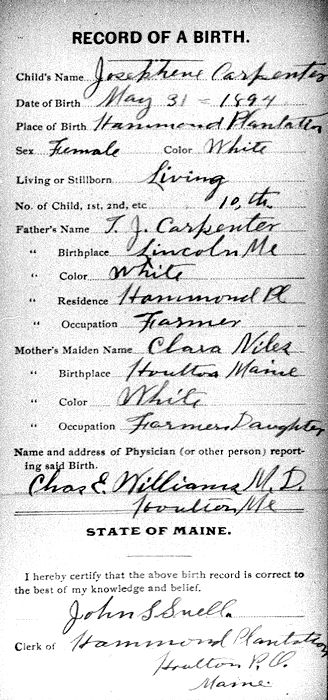 RECORD OF A BIRTH.
Child's Name Josephene Carpenter
Date of Birth May 31 = 1894
Place of Birth Hammond Plantation
Sex Female Color White
Living or Stillborn Living
No. of Child, 1st, 2nd, etc. 10,th
Father's Name T. J. Carpenter
" Birthplace Lincoln Me
" Color White
" Residence Hammond Pl
" Occupation Farmer
Mother's Maiden Name Clara Niles
" Birthplace Houlton Maine
" Color White
" Occupation Farmers Daughter
Name and address of Physician (or other person) report-
ing said Birth.
Chas E. Williams M. D.
Houlton Me
STATE OF MAINE.
I hereby certify that the above birth record is correct to
the best of my knowledge and belief.
John S Snell
Clerk of Hammond Plantation
Houlton P.O.
Maine